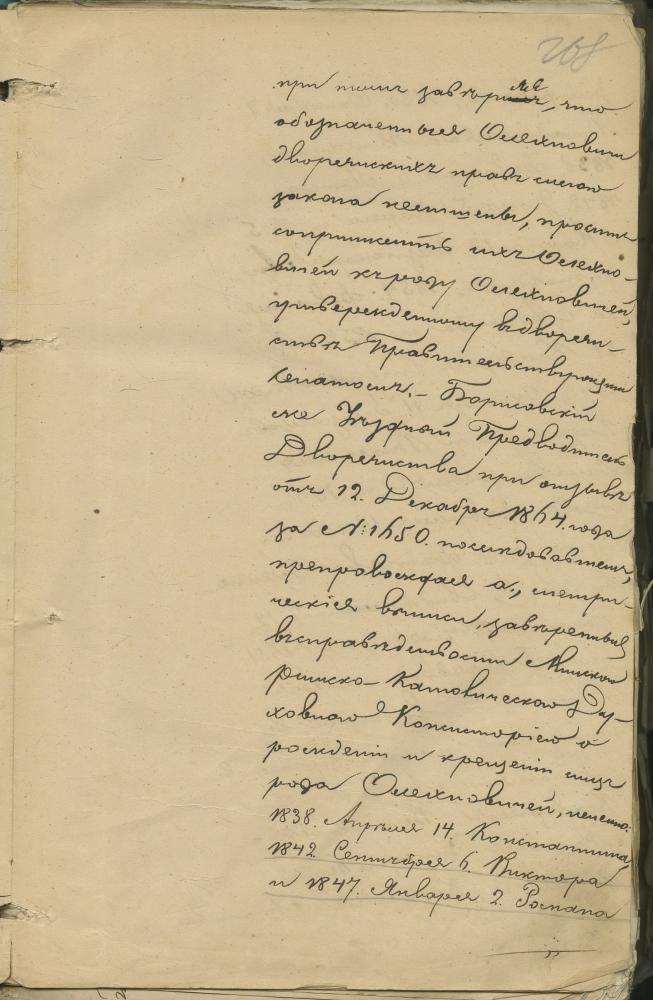 268
при томъ завѣряя, что
обозначенные Олехновичи
дворянскихъ правъ силою
закона не лишены, просить
сопричислить ихъ Олехно-
вичей къ роду Олехновичей,
утвержденному въ дворян-
ствѣ Правительствующимъ
Сенатомъ. – Борисовскій
же Уѣздный Предводитель
Дворянства при отзывѣ
отъ 12. Декабря 1864. года
за №: 1650. послѣдовавшемъ,
препровождая а., метри-
ческія выписи, завѣренныя
въ справедливости Минскою
Римско-Католическою Ду-
ховною Консисторіею о
рожденіи и крещеніи лицъ
рода Олехновичей, именно:
1838. Апрѣля 14. Константина,
1842. Сентября 6. Виктора
и 1847. Января 2. Романа